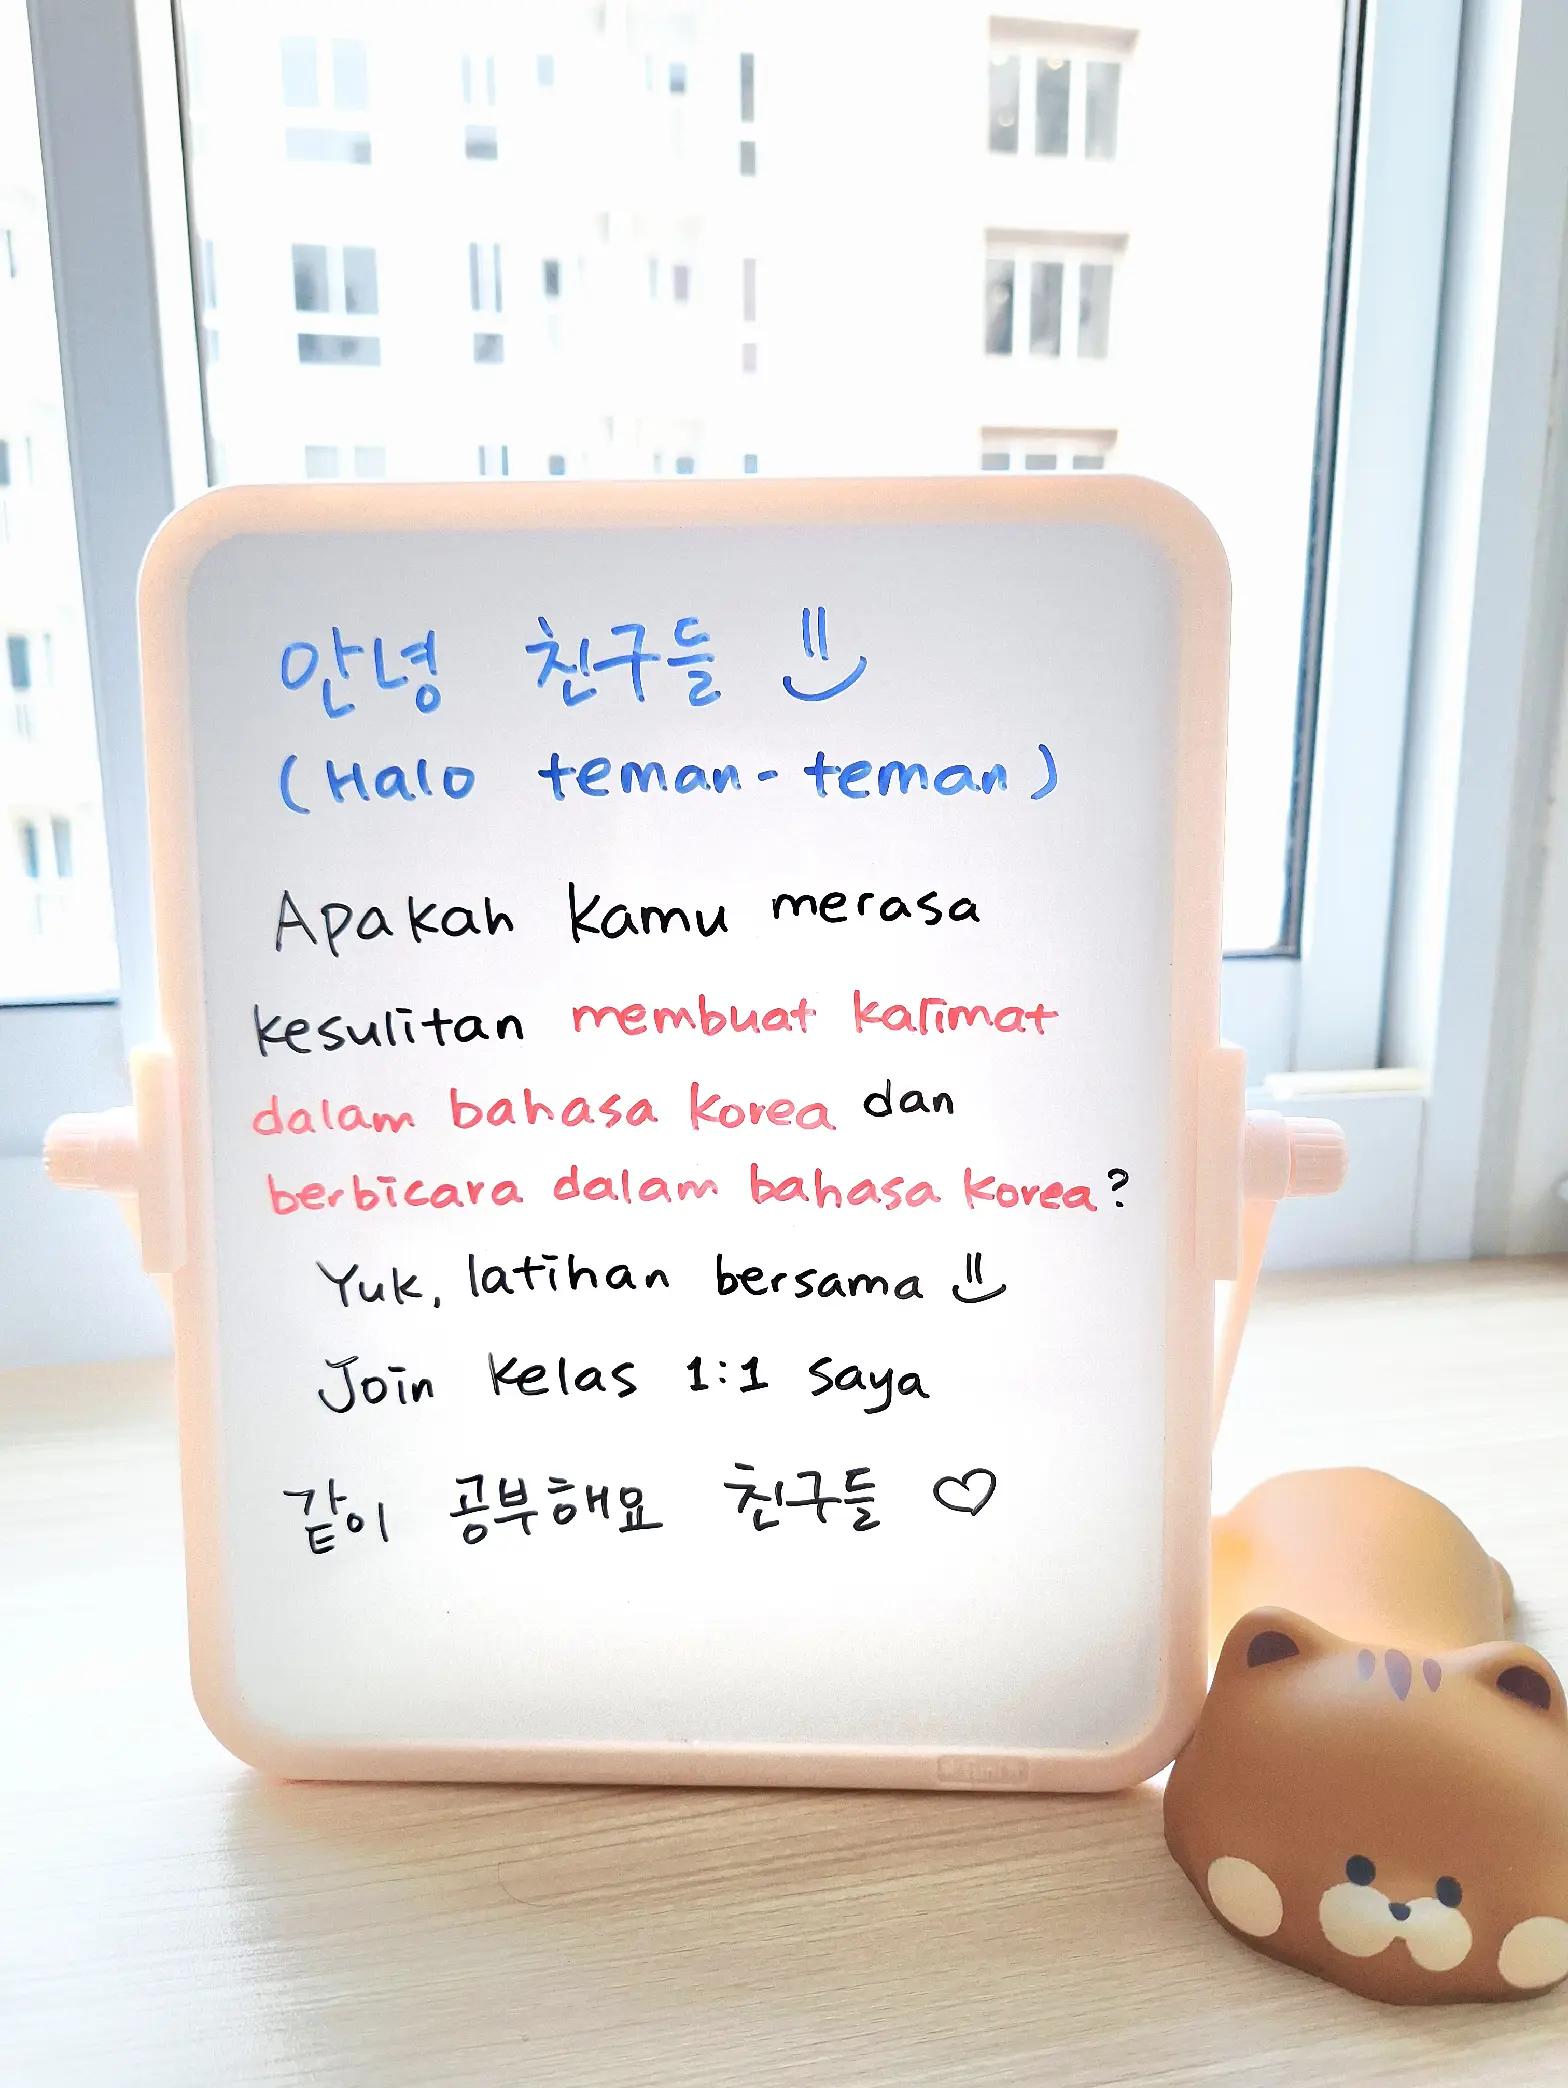 안녕 친구들
(Halo teman-teman)
Apakah kamu merasa
kesulitan membuat kalimat
dalam bahasa Korea dan
berbicara dalam bahasa Korea?
Yuk, latihan bersama
Join kelas 1:1 saya
같이 공부해요 친구들 ♡